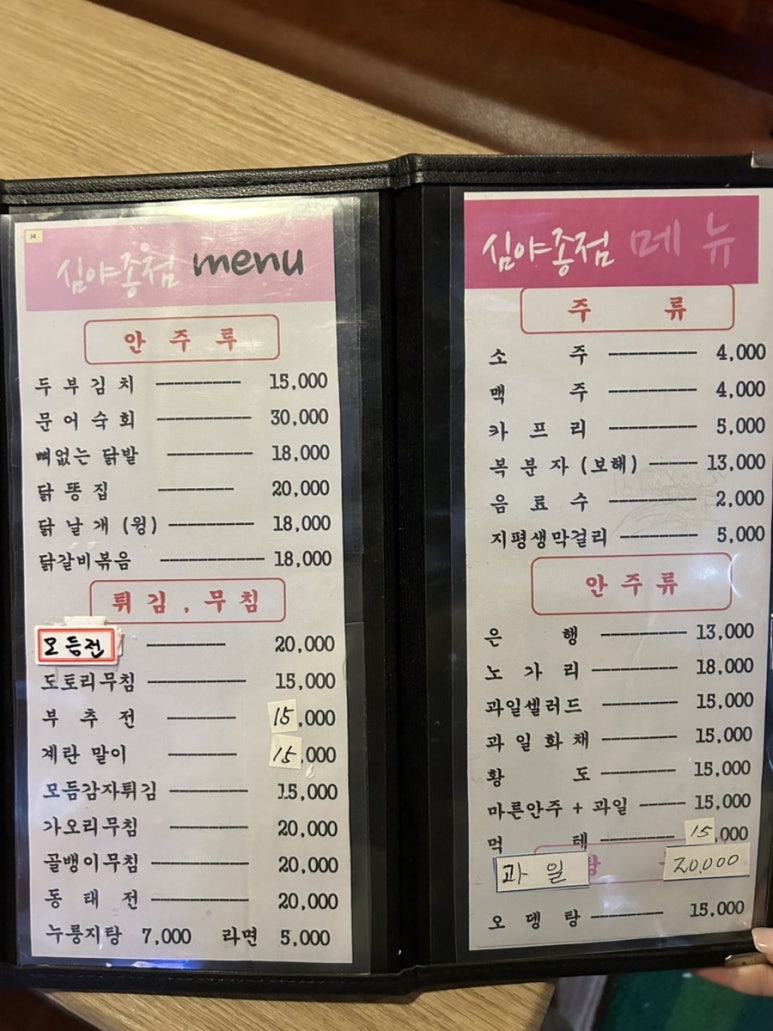 심야종점 menu
안 주 류
두 부 김 치 15,000
문 어 숙 회 30,000
뼈없는 닭발 18,000
닭 똥 집 20,000
닭 날 개 (윙) 18,000
닭갈비볶음 18,000
튀 김 , 무 침
모듬전 20,000
도토리무침 15,000
부 추 전 15,000
계란 말이 15,000
모듬감자튀김 15,000
가오리무침 20,000
골뱅이무침 20,000
동 태 전 20,000
누룽지탕 7,000 라면 5,000
심야종점 메 뉴
주 류
소 주 4,000
맥 주 4,000
카 프 리 5,000
복 분 자 (보해) 13,000
음 료 수 2,000
지평생막걸리 5,000
안 주 류
은 행 13,000
노 가 리 18,000
과일샐러드 15,000
과 일 화 채 15,000
황 도 15,000
마른안주 + 과일 15,000
먹 태 15,000
탕
과 일 20,000
오 뎅 탕 15,000